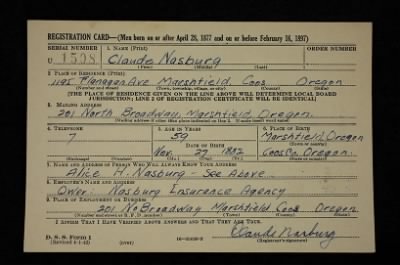 REGISTRATION CARD—(Men born on or after April 28, 1877 and on or before February 16, 1897)
SERIAL NUMBER 1. NAME (Print) ORDER NUMBER
U 1508 Claude Nasburg
(First) (Middle) (Last)
2. PLACE OF RESIDENCE (Print)
1195 Flanagan Ave Marshfield, Coos Oregon
(Number and street) (Town, township, village, or city) (County) (State)
[THE PLACE OF RESIDENCE GIVEN ON THE LINE ABOVE WILL DETERMINE LOCAL BOARD
JURISDICTION; LINE 2 OF REGISTRATION CERTIFICATE WILL BE IDENTICAL]
3. MAILING ADDRESS
201 North Broadway, Marshfield, Oregon.
[Mailing address if other than place indicated on line 2. If same insert word same]
4. TELEPHONE 5. AGE IN YEARS 6. PLACE OF BIRTH
7 59 Marshfield, Oregon
DATE OF BIRTH (Town or county)
Nov. 27 1882 Coos Co. Oregon.
(Exchange) (Number) (Mo.) (Day) (Yr.) (State or country)
7. NAME AND ADDRESS OF PERSON WHO WILL ALWAYS KNOW YOUR ADDRESS
Alice H. Nasburg - See Above
8. EMPLOYER'S NAME AND ADDRESS
Own: Nasburg Insurance Agency
9. PLACE OF EMPLOYMENT OR BUSINESS
201 No Broadway Marshfield Coos Oregon
(Number and street or R. F. D. number) (Town) (County) (State)
I AFFIRM THAT I HAVE VERIFIED ABOVE ANSWERS AND THAT THEY ARE TRUE.
D. S. S. Form 1
(Revised 4-1-42) (over) Claude Nasburg
(Registrant's signature)